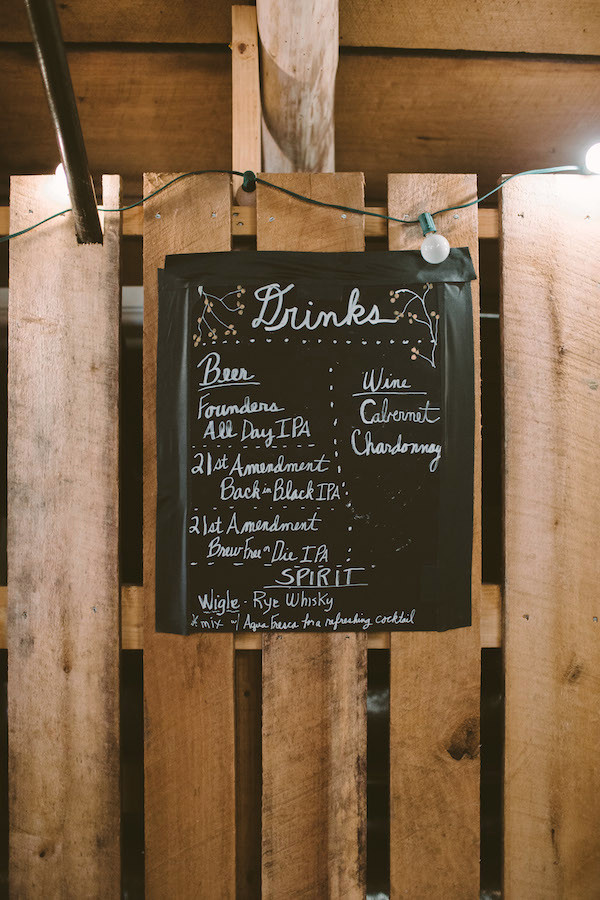 Drinks
Beer
Founders
All Day IPA
21st Amendment
Back in Black IPA
21st Amendment
Brew Free or Die IPA
Wine
Cabernet
Chardonnay
SPIRIT
Wigle - Rye Whisky
* mix w/ Aqua Fresca for a refreshing cocktail